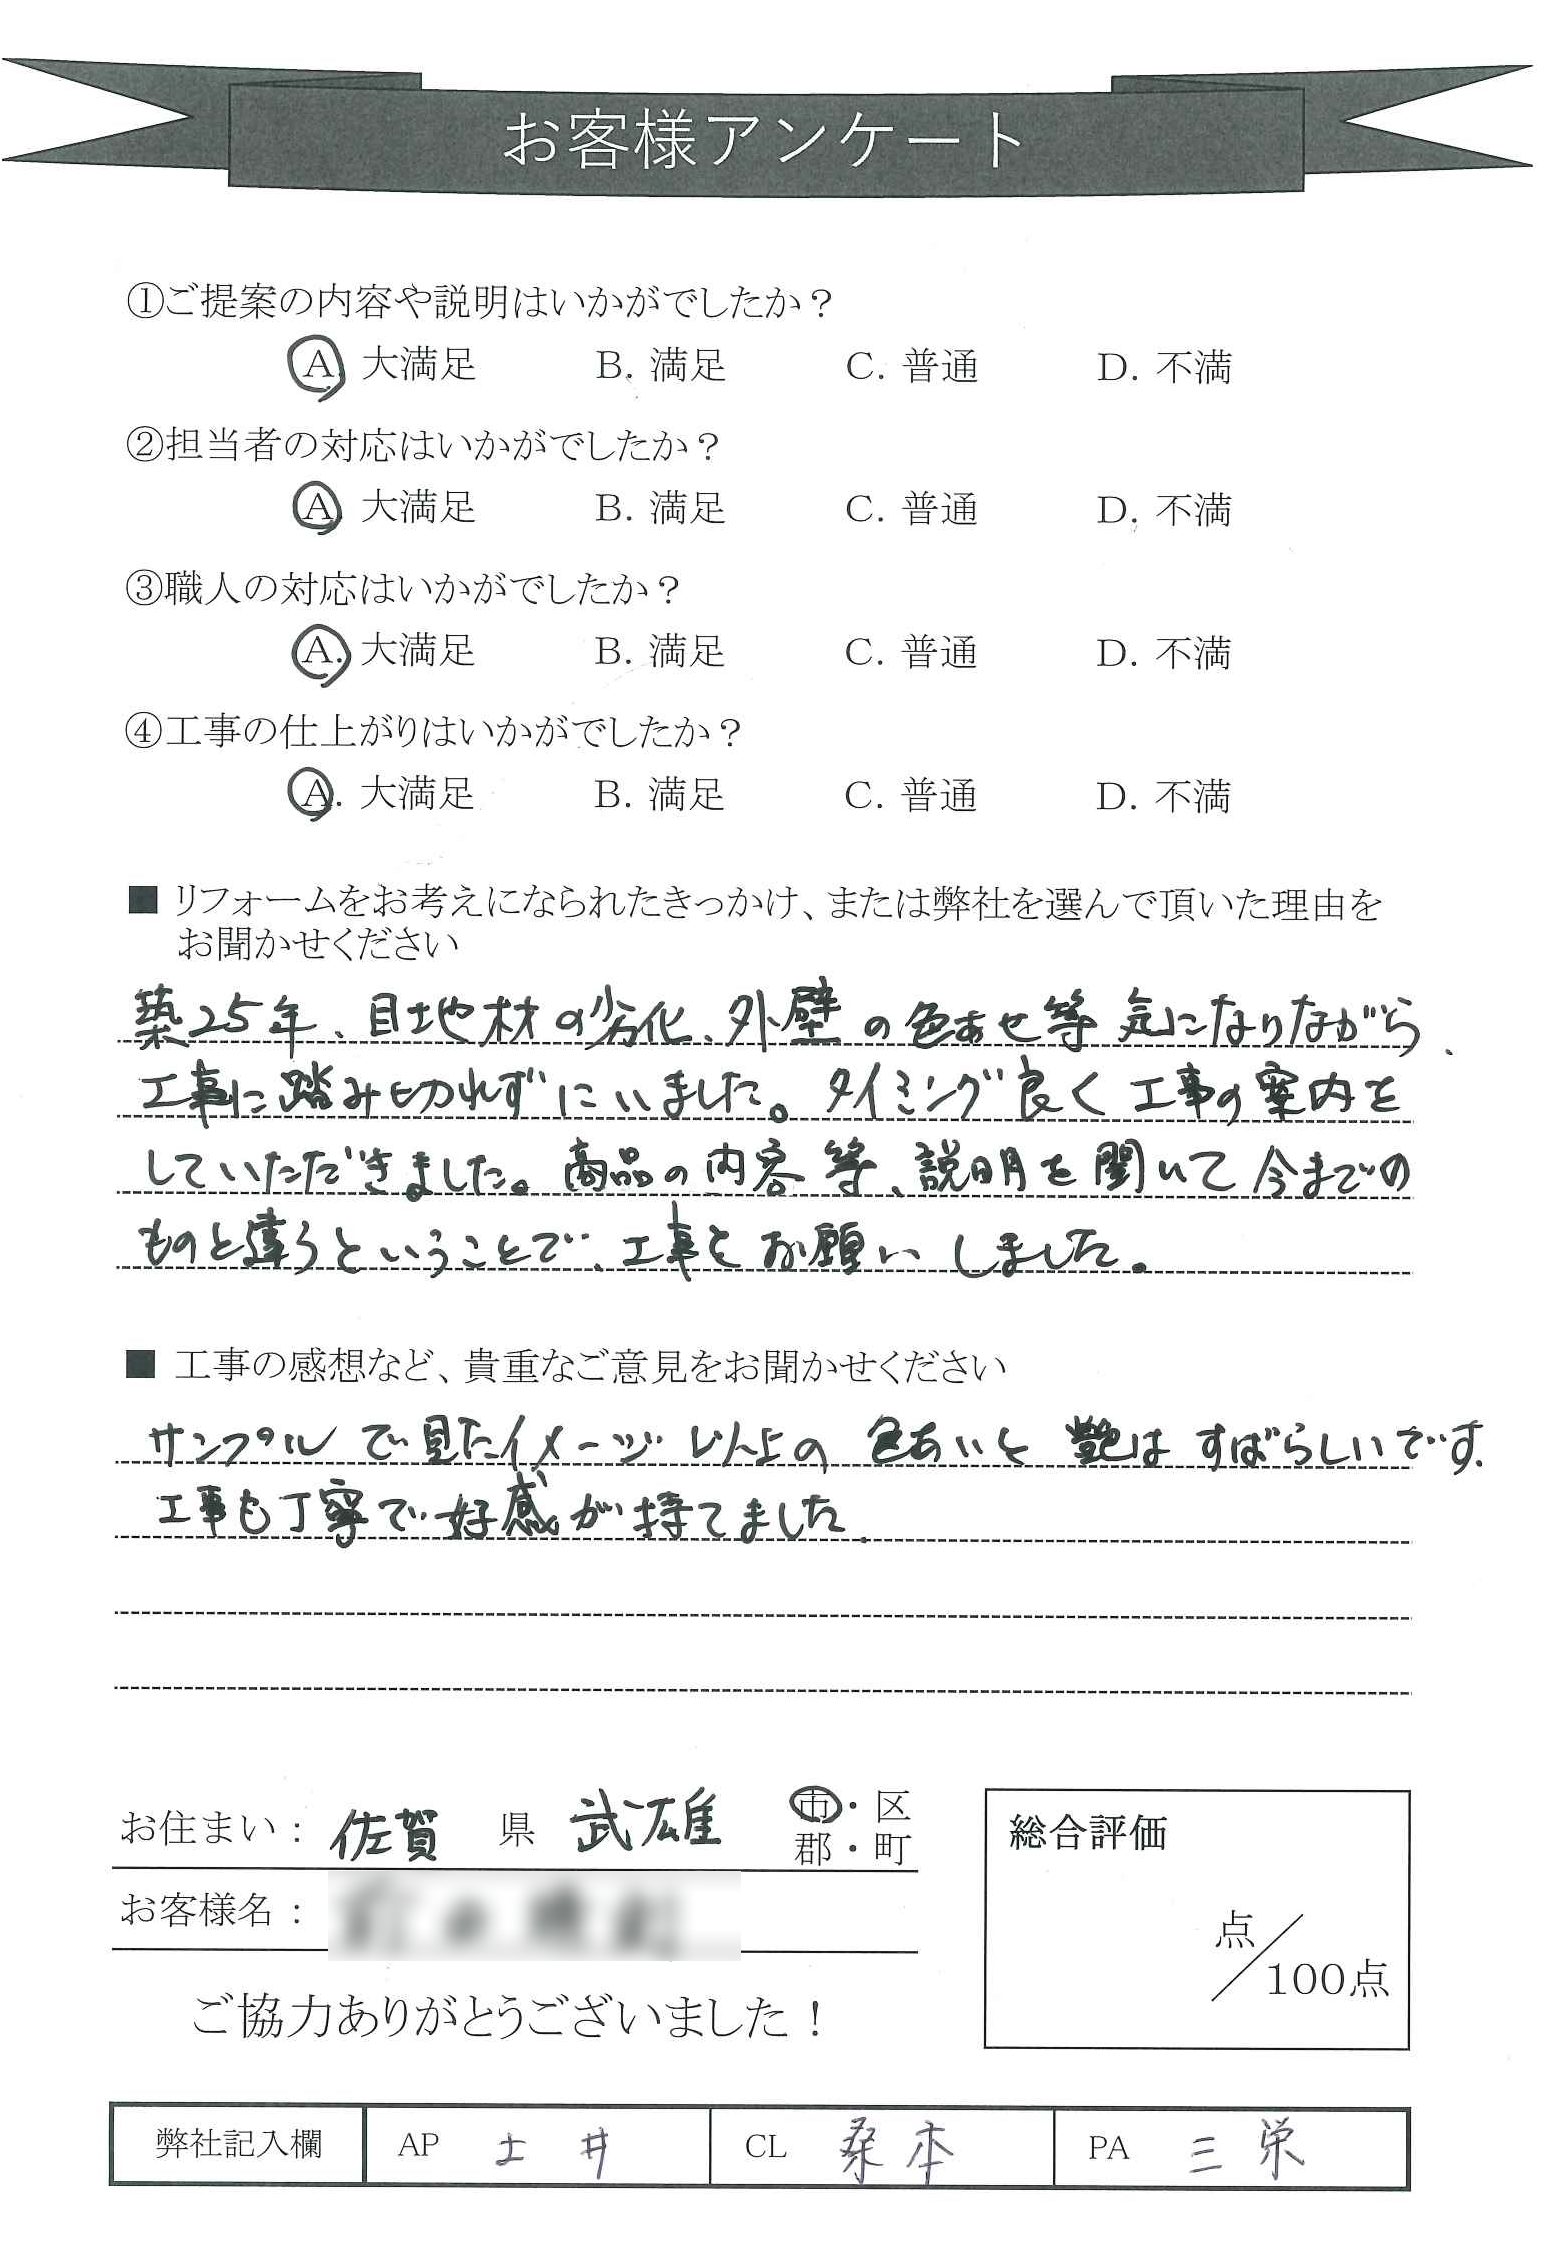 お客様アンケート
①ご提案の内容や説明はいかがでしたか？
A. 大満足 B. 満足 C. 普通 D. 不満
②担当者の対応はいかがでしたか？
A. 大満足 B. 満足 C. 普通 D. 不満
③職人の対応はいかがでしたか？
A. 大満足 B. 満足 C. 普通 D. 不満
④工事の仕上がりはいかがでしたか？
A. 大満足 B. 満足 C. 普通 D. 不満
■ リフォームをお考えになられたきっかけ、または弊社を選んで頂いた理由を
お聞かせください
築25年、目地材の劣化、外壁の色あせ等気になりながら、
工事に踏み切れずにいました。タイミング良く工事の案内を
していただきました。商品の内容等、説明を聞いて今までの
ものと違うということで、工事をお願いしました。
■ 工事の感想など、貴重なご意見をお聞かせください
サンプルで見たイメージ以上の色あいと艶はすばらしいです。
工事も丁寧で好感が持てました。
お住まい： 佐賀 県 武雄 市・区
郡・町
お客様名：
総合評価
点／100点
ご協力ありがとうございました！
弊社記入欄 AP 土井 CL 桑本 PA 三栄